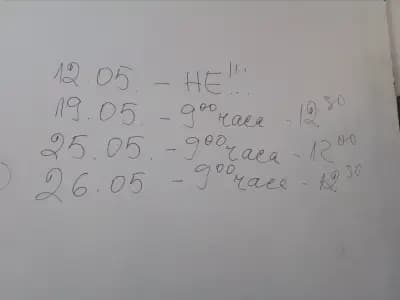 12.05. - НЕ!!!...
19.05. - 9⁰⁰ часа - 12³⁰
25.05. - 9⁰⁰ часа - 12⁰⁰
26.05 - 9⁰⁰ часа - 12³⁰